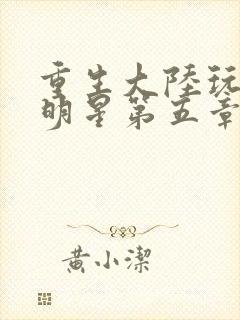 重生大陸玩
明星第五章
黃小潔